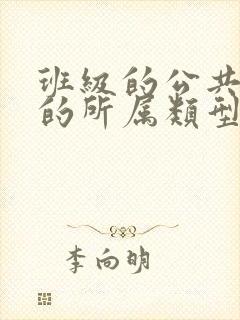 班級的公共
的所属類型
李向明